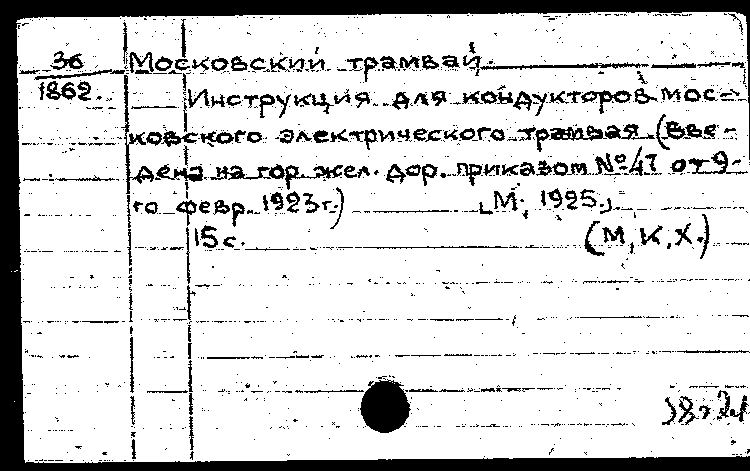 36 Московский трамвай.
1862. Инструкция для кондукторов мос-
ковского электрического трамвая (Вве-
дена на гор. жел. дор. приказом №47 от 9-
го февр. 1923 г.) [М., 1925.]
15 с. (М, К, Х.)